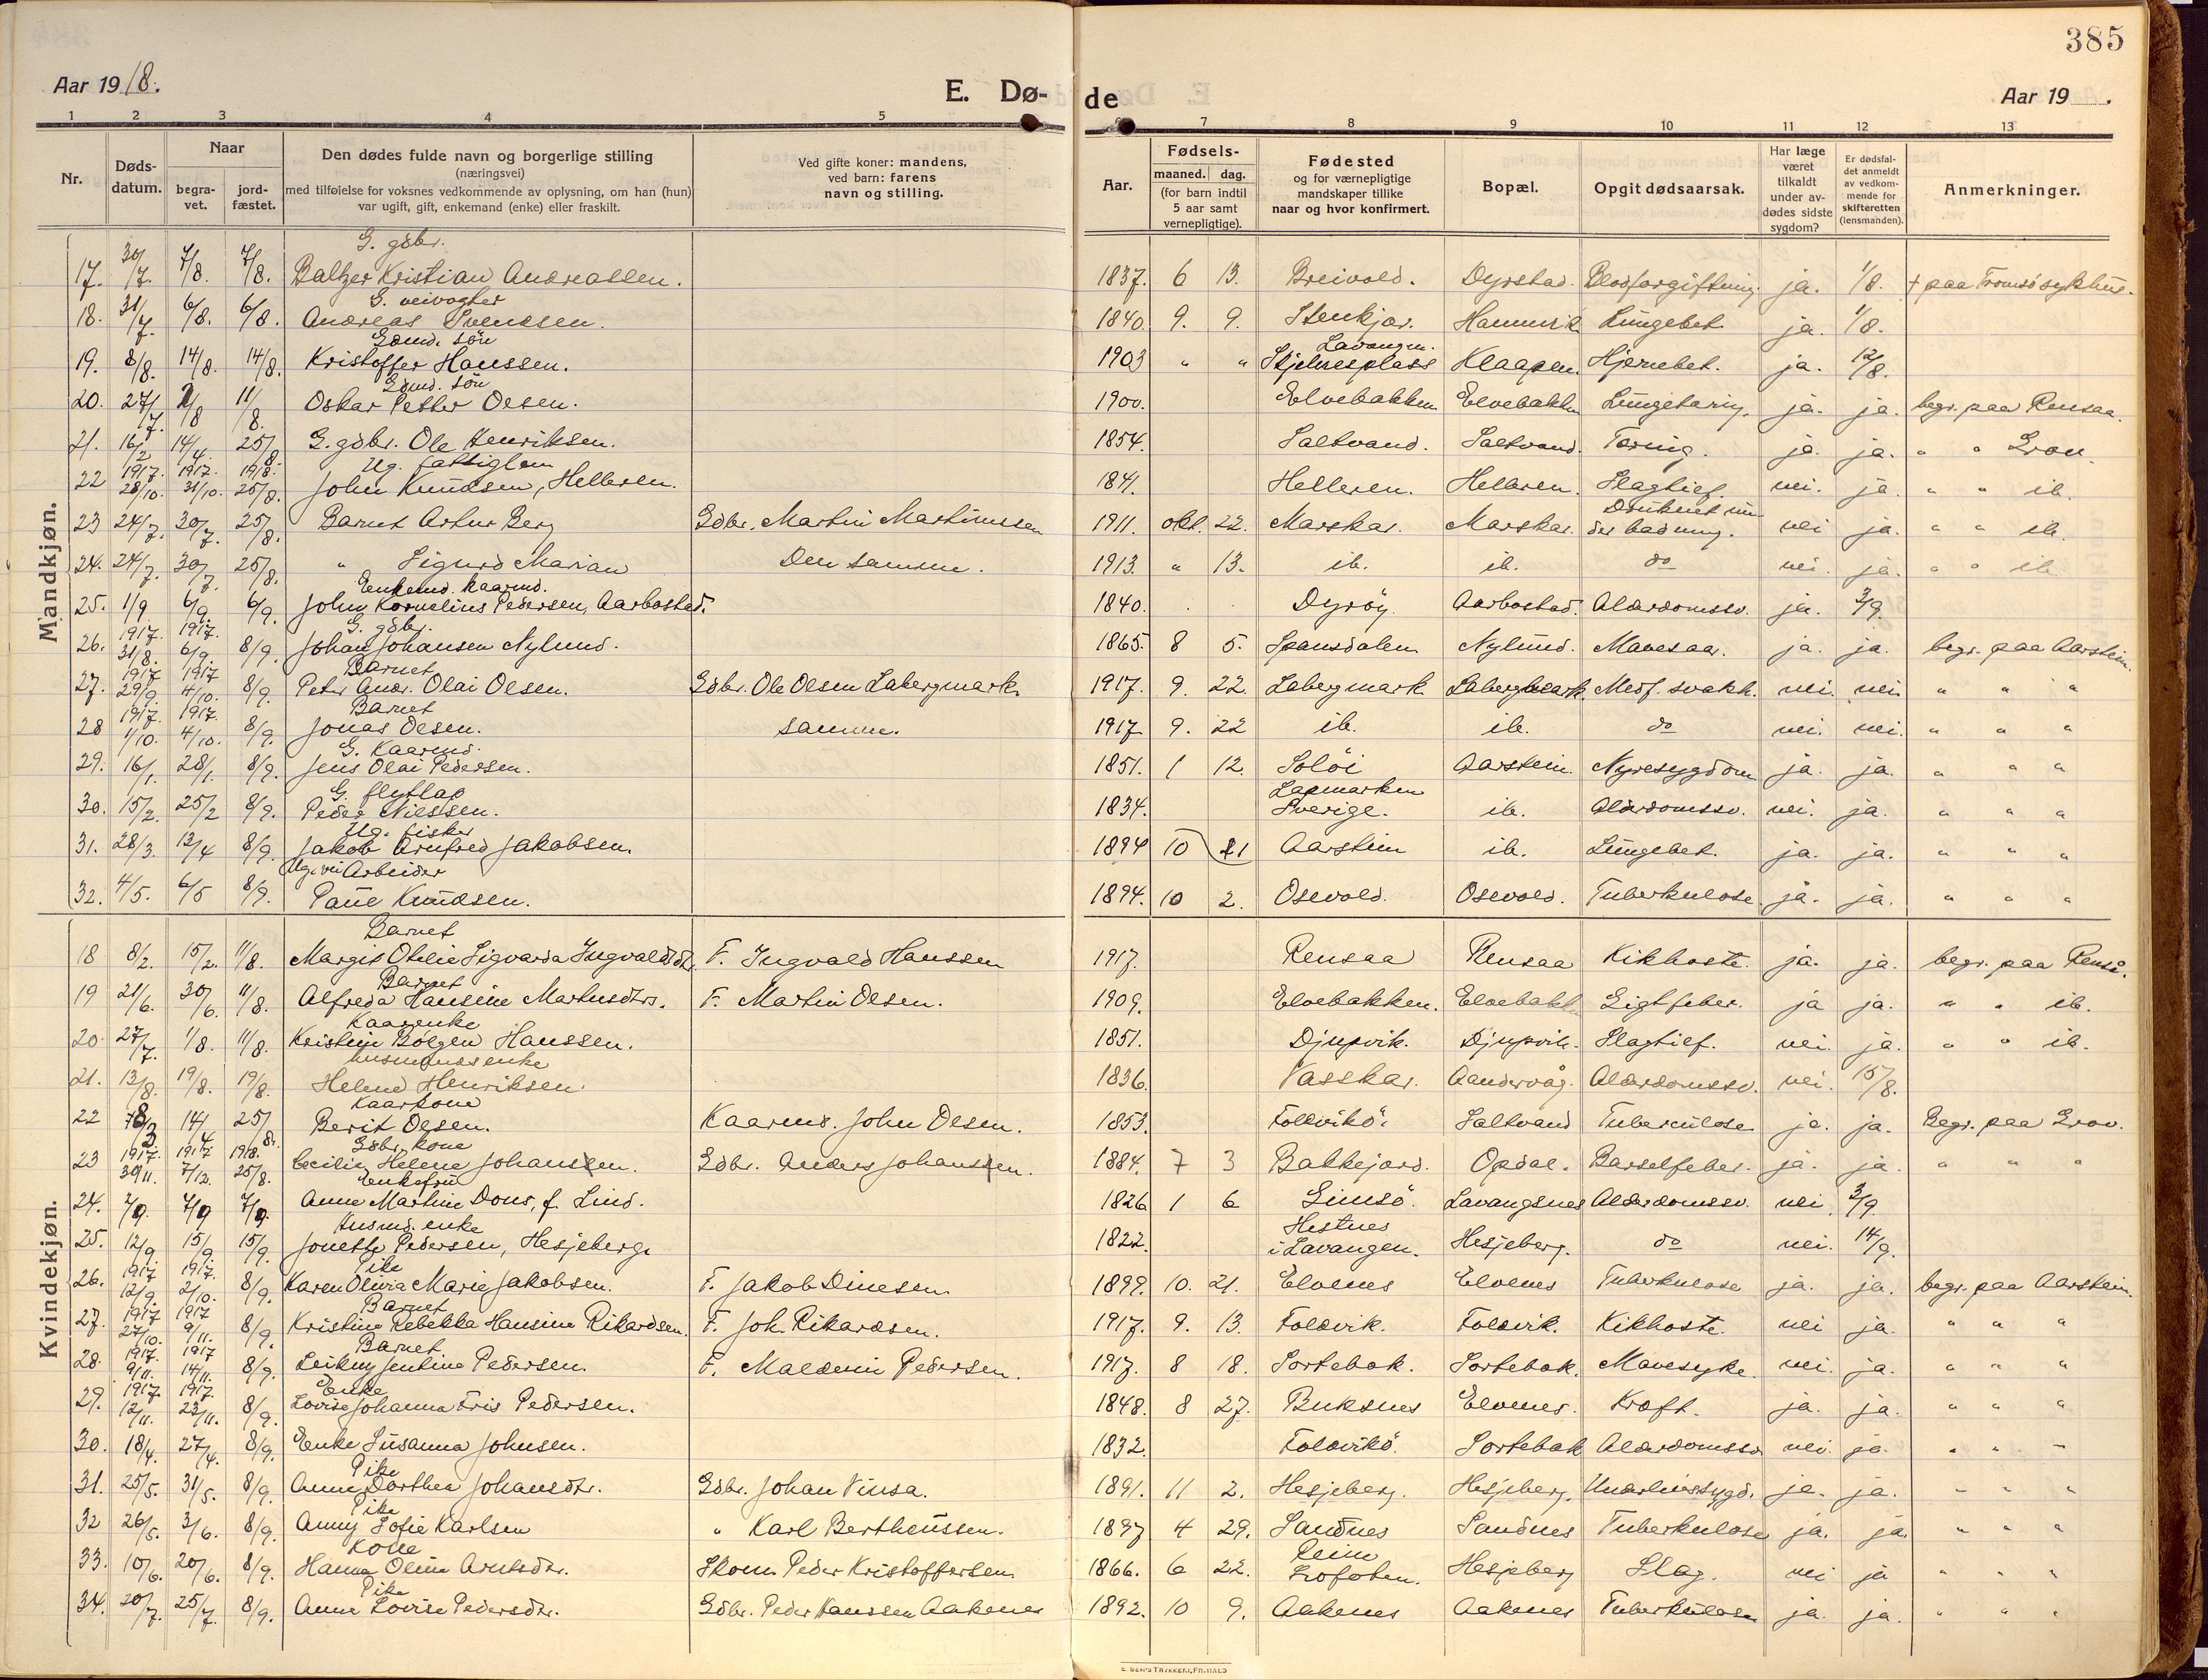 385
Aar 1918.
E. Dø-de
Aar 19 .
1 2 3 4 5 6 7 8 9 10 11 12 13
Nr.
Døds-datum.
Naar
begra-vet.
jord-fæstet.
Den dødes fulde navn og borgerlige stilling
(næringsvei)
med tilføielse for voksnes vedkommende av oplysning, om han (hun)
var ugift, gift, enkemand (enke) eller fraskilt.
Ved gifte koner: mandens,
ved barn: farens
navn og stilling.
Aar.
Fødsels-
maaned. dag.
(for barn indtil
5 aar samt
vernepligtige).
Fødested
og for værnepligtige
mandskaper tillike
naar og hvor konfirmert.
Bopæl.
Opgit dødsaarsak.
Har læge
været
tilkaldt
under av-
dødes sidste
sygdom?
Er dødsfal-
det anmeldt
av vedkom-
mende for
skifteretten
(lensmanden).
Anmerkninger.
Mandkjøn.
G. gdbr.
17. 30/7. 7/8. 7/8. Baltzer Kristian Andreassen. 1837. 6 13. Breivold. Dyrstad. Blodforgiftning. ja. 1/8. † paa Tromsö sykhus.
G. veivogter
18. 31/7. 6/8. 6/8. Andreas Svendsen. 1840. 9. 9. Stenkjær. Hamnvik Lungebet. ja. 1/8.
Gdmd. sön Lavangen.
19. 8/8. 14/8. 14/8. Kristoffer Hanssen. 1903 " " Skjelnesplass Klaapen. Hjernebet. ja. 12/8.
Gdmd. sön
20. 27/7. 11/8 11/8. Oskar Petter Olsen. 1900. Elvebakken Elvebakken Lungetæring. ja. ja. begr. paa Rensaa.
21. 16/2 14/4. 25/8. G. gdbr. Ole Henriksen. 1854. Saltvand. Saltvand. Tæring. ja. ja. " " Grov.
Ug. fattiglem
22 1917. 28/10. 1917. 31/10. 1918. 25/8. John Knudsen, Helleren. 1841. Helleren. Helleren. Slagtilf. nei. ja. " " ib.
23 24/7. 30/7. 25/8. Barnet Artur Berg Gdbr. Martin Martinussen 1911. okt. 22. Marskar. Marskar. Druknet under badning. nei ja. " " ib.
24. 24/7. 30/7. 25/8. " Sigurd Marian Den samme. 1913. " 13. ib. ib. do nei. ja. " " ib.
Enkemd. kaarmd.
25. 1/9 6/9. 6/9. John Kornelius Pedersen, Aarbostad. 1840. . . Dyröy. Aarbostad. Alderdomssv. ja. 3/9.
G. gdbr.
26. 1917. 31/8. 1917. 6/9. 8/9. Johan Johansen Nylund. 1865. 8 5. Spansdalen Nylund. Mavesaar. ja. ja. begr. paa Aarstein.
Barnet
27. 1917 29/9. 1917 4/10. 8/9. Peter Andr. Olai Olsen. Gdbr. Ole Olsen Labergmark. 1917. 9. 22 Labergmark Labergmark. Medf. svakh. nei. nei. " " "
Barnet
28 1917. 1/10. 1917. 4/10. 8/9. Jonas Olsen. samme. 1917 9. 22 ib. ib. do nei. nei. " " "
G. Kaarmd.
29. 16/1. 28/1. 8/9. Jens Olai Pedersen. 1851. 1 12. Solöi Aarstein. Nyresygdom ja. ja. " " "
G. flytlap Lapmarken
30. 15/2. 25/2 8/9. Peder Nielsen. 1834. Sverige. ib. Alderdomssv. nei. ja. " " "
Ug. fisker
31. 28/3. 12/4 8/9. Jakob Arnfred Jakobsen. 1894 10 21 Aarstein ib. Lungebet. ja. ja. " " "
Ug. vei Arbeider
32. 4/5. 6/5 8/9. Paul Knudsen. 1894. 10 2. Osevold. Osevold. Tuberkulose. ja. ja. " " "
Kvindekjøn.
Barnet
18 8/2. 15/2. 11/8. Margit Otilie Sigvarda Ingvaldsdtr. F. Ingvald Hanssen 1917. Rensaa Rensaa Kikhoste. ja. ja. begr. paa Renså.
Barnet
19 21/6. 30/6. 11/8. Alfreda Hansine Martinsdtr. F. Martin Olsen. 1909. Elvebakken. Elvebakk Gigtfeber. ja ja. " " ib.
Kaarenke
20. 27/7. 1/8. 11/8. Kristine Hanssen. 1851. Djupvik. Djupvik. Slagtilf. nei. ja. " " ib.
husmandsenke
21. 13/8. 19/8. 19/8. Helene Henriksen. 1836. Vasskar. Aandervåg. Alderdomssv. nei. 15/8.
Kaarkone
22 14/4 25/8. Berit Olsen. Kaarmd. John Olsen. 1853. Foldvikö. Saltvand Tuberculose ja. ja. Begr. paa Grov.
Gdbr. kone
23 1917. 30/11. 1917 7/12. 1918. 25/8. Cecilie Helene Johansen. Gdbr. Anders Johansen. 1884. 7 3 Bakkejord. Opdal. Barselfeber. ja. ja. " " "
Enkefru
24. 7/9 7/9. Anne Martine Dons, f. Lind. 1826 1 6 Gimsö. Lavangsnes Alderdomssv. nei. 3/9.
Husmd. enke Hestnes
25. 12/9 15/9 15/9. Jonette Pedersen, Hesjeberg. 1822. i Lavangen. Hesjeberg. do nei. 14/9.
Pike
26. 1917 12/9 1917. 2/10. 8/9. Karen Olivia Marie Jakobsen. F. Jakob Dinesen 1899. 10. 21. Elvenes Elvenes Tuberkulose ja. ja. begr. paa Aarstein.
Barnet
27. 1917 27/10. 1917 9/11. 8/9. Kristine Rebekka Hansine Rikardsen. F. Joh. Rikardsen. 1917. 9. 13. Foldvik. Foldvik. Kikhoste. nei ja. " " "
Barnet
28. 1917. 9/11. 1917 14/11. 8/9. Leikny Jentine Pedersen. F. Maldemin Pedersen. 1917. 8 18. Sortebak. Sortebak. Mavesyke. nei. ja. " " "
Enke
29. 1917. 12/11. 1917. 23/11. 8/9. Lovise Johanna Fris Pedersen. 1848. 8 27. Buksnes Elvenes. Kræft. ja. ja. " " "
30. 18/4. 27/4. 8/9. Enke Susanna Johnsen. 1832. Foldvikö. Sortebak Alderdomssv nei. ja. " " "
Pike
31. 25/5. 31/5. 8/9. Anne Dorthea Johansdtr. Gdbr. Johan Vinsa. 1891. 11 2. Hesjeberg. Hesjeberg. Underlivssygd. ja. ja. " " "
Pike
32 26/5. 3/6. 8/9. Anny Sofie Karlsen " Karl Bertheussen. 1897 4 29. Sandnes Sandnes Tuberkulose ja. ja " " "
Kone Reine
33. 10/6. 20/6. 8/9. Hanna Oline Arntsdtr. Skom. Peder Kristoffersen 1866. 6 22. Lofoten. Hesjeberg Slag. nei ja " " "
Pike
34. 20/7. 25/7. 8/9. Anne Lovise Pedersdtr. Gdbr. Peder Hanssen Aakenes 1892. 10 9. Aakenes Aakenes Tuberkulose ja. ja. " " "